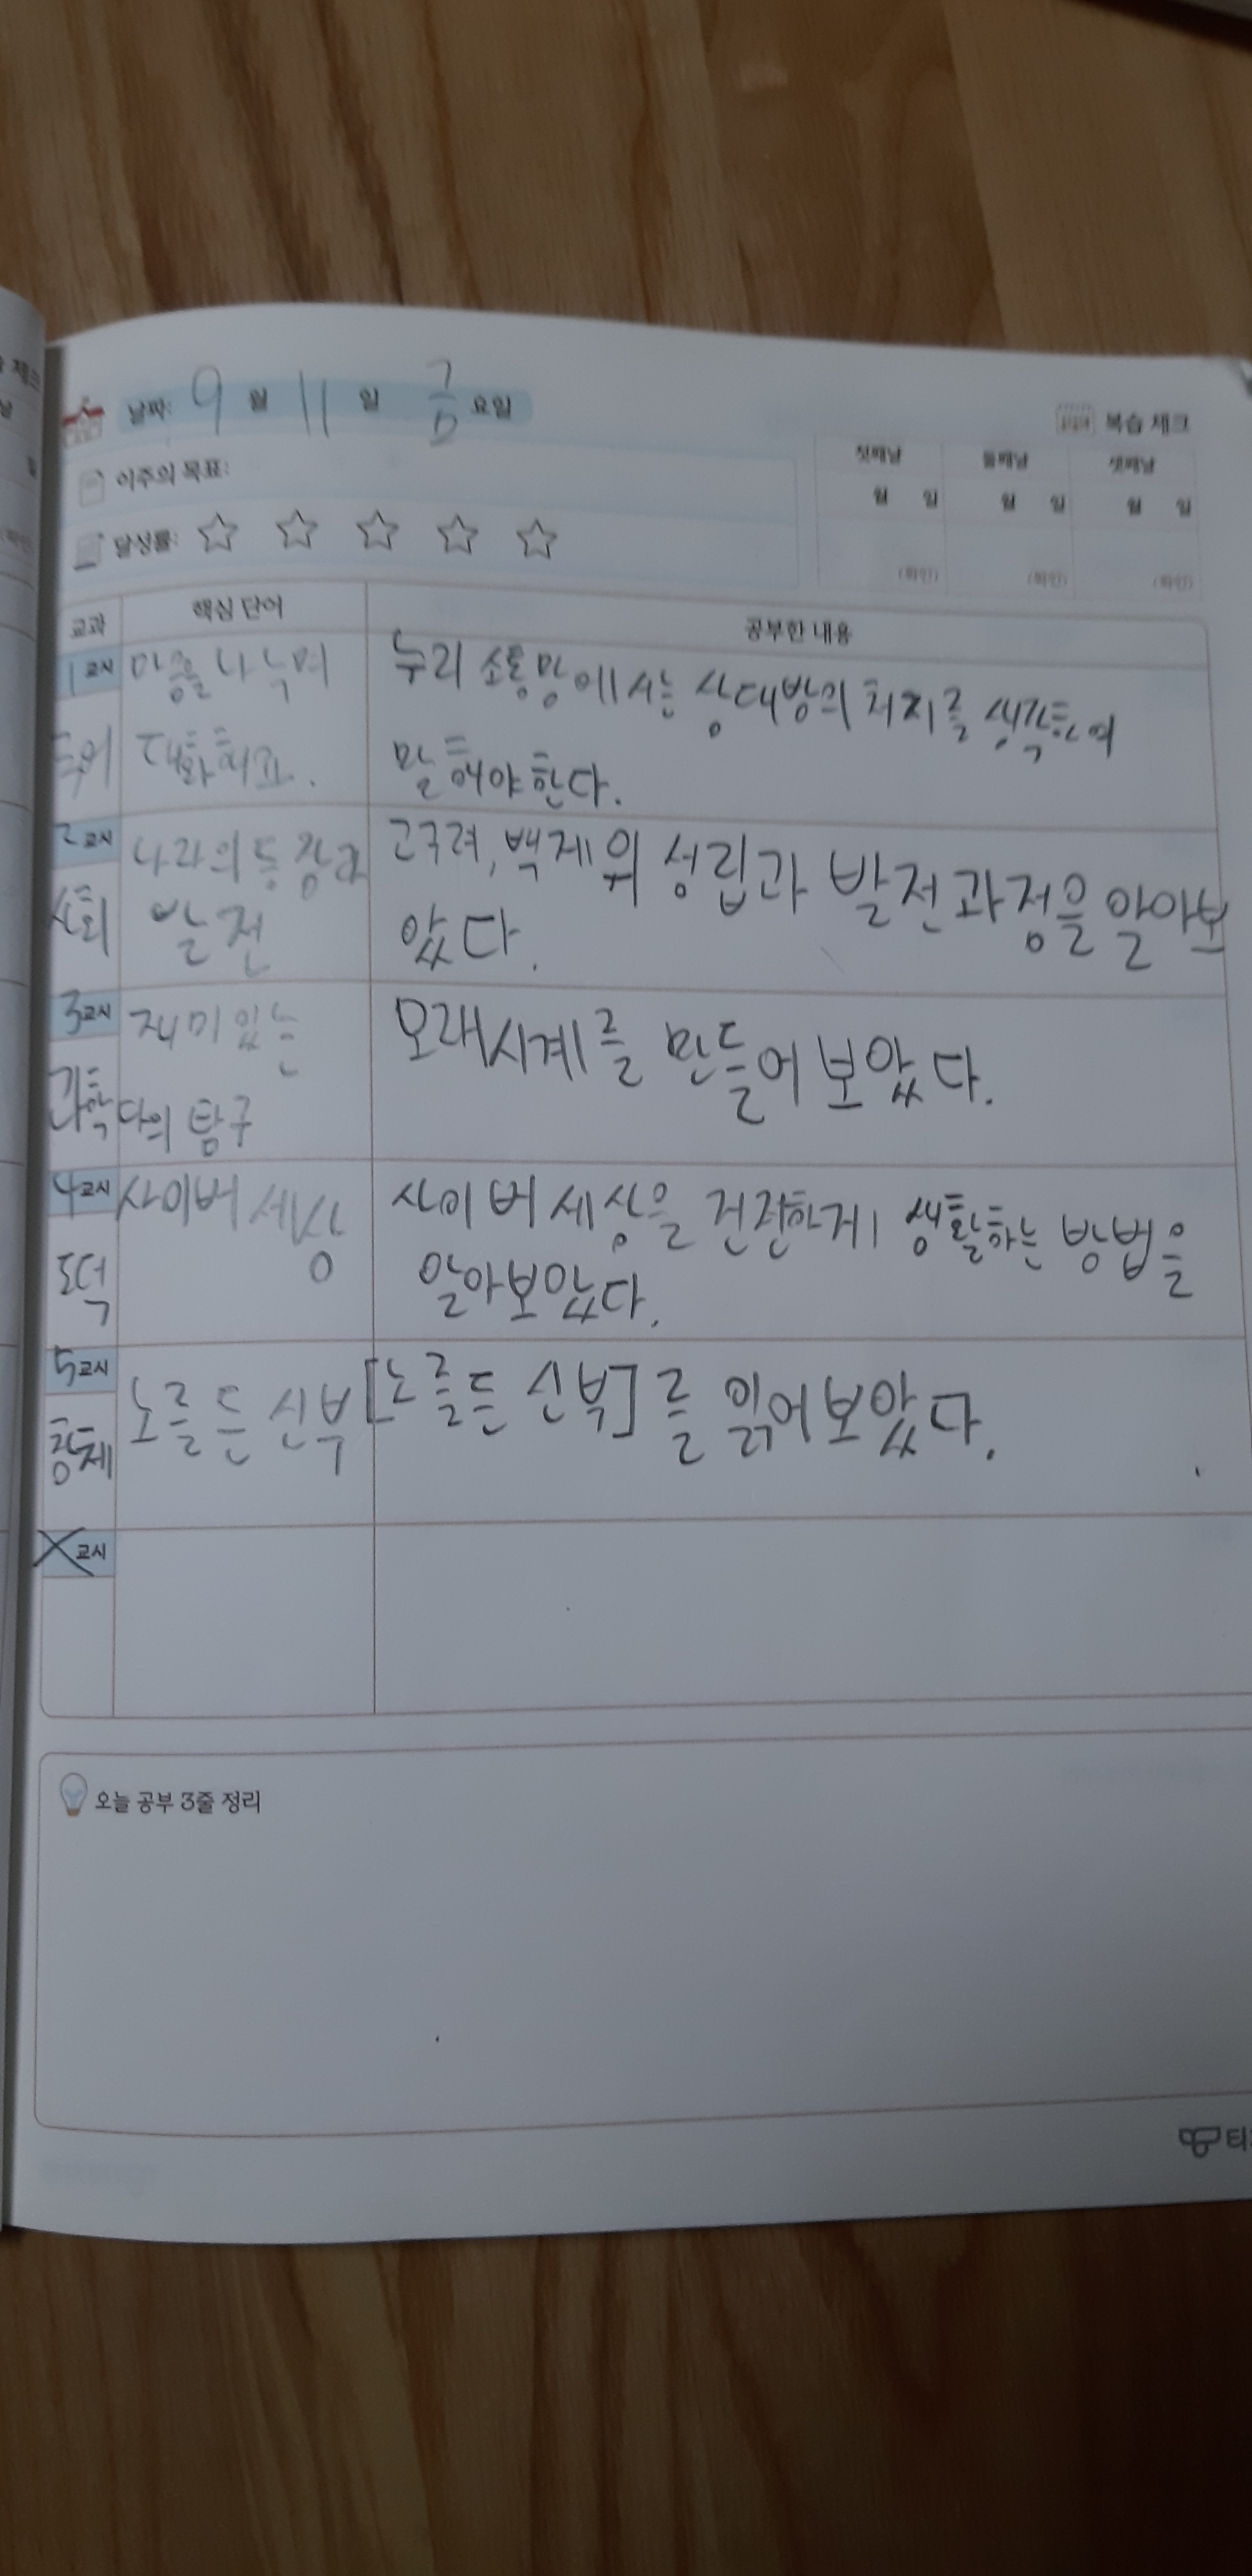 날짜: 9 월 11 일 금 요일
복습 체크
이주의 목표:
첫째날 둘째날 셋째날
월 일 월 일 월 일
달성률: ☆ ☆ ☆ ☆ ☆
(확인) (확인) (확인)
교과 핵심 단어 공부한 내용
1 교시 마음을 나누며 누리 소통망에서는 상대방의 처지를 생각하여
국어 대화해요. 말해야한다.
2 교시 나라의 등장과 고구려, 백제의 성립과 발전과정을 알아보
사회 발전 았다.
3 교시 재미있는 모래시계를 만들어 보았다.
과학 나의 탐구
4 교시 사이버 세상 사이버 세상을 건전하게 생활하는 방법을
도덕 알아보았다.
5 교시 노를든 신부 [노를든 신부]를 읽어보았다.
창체
교시
오늘 공부 3줄 정리